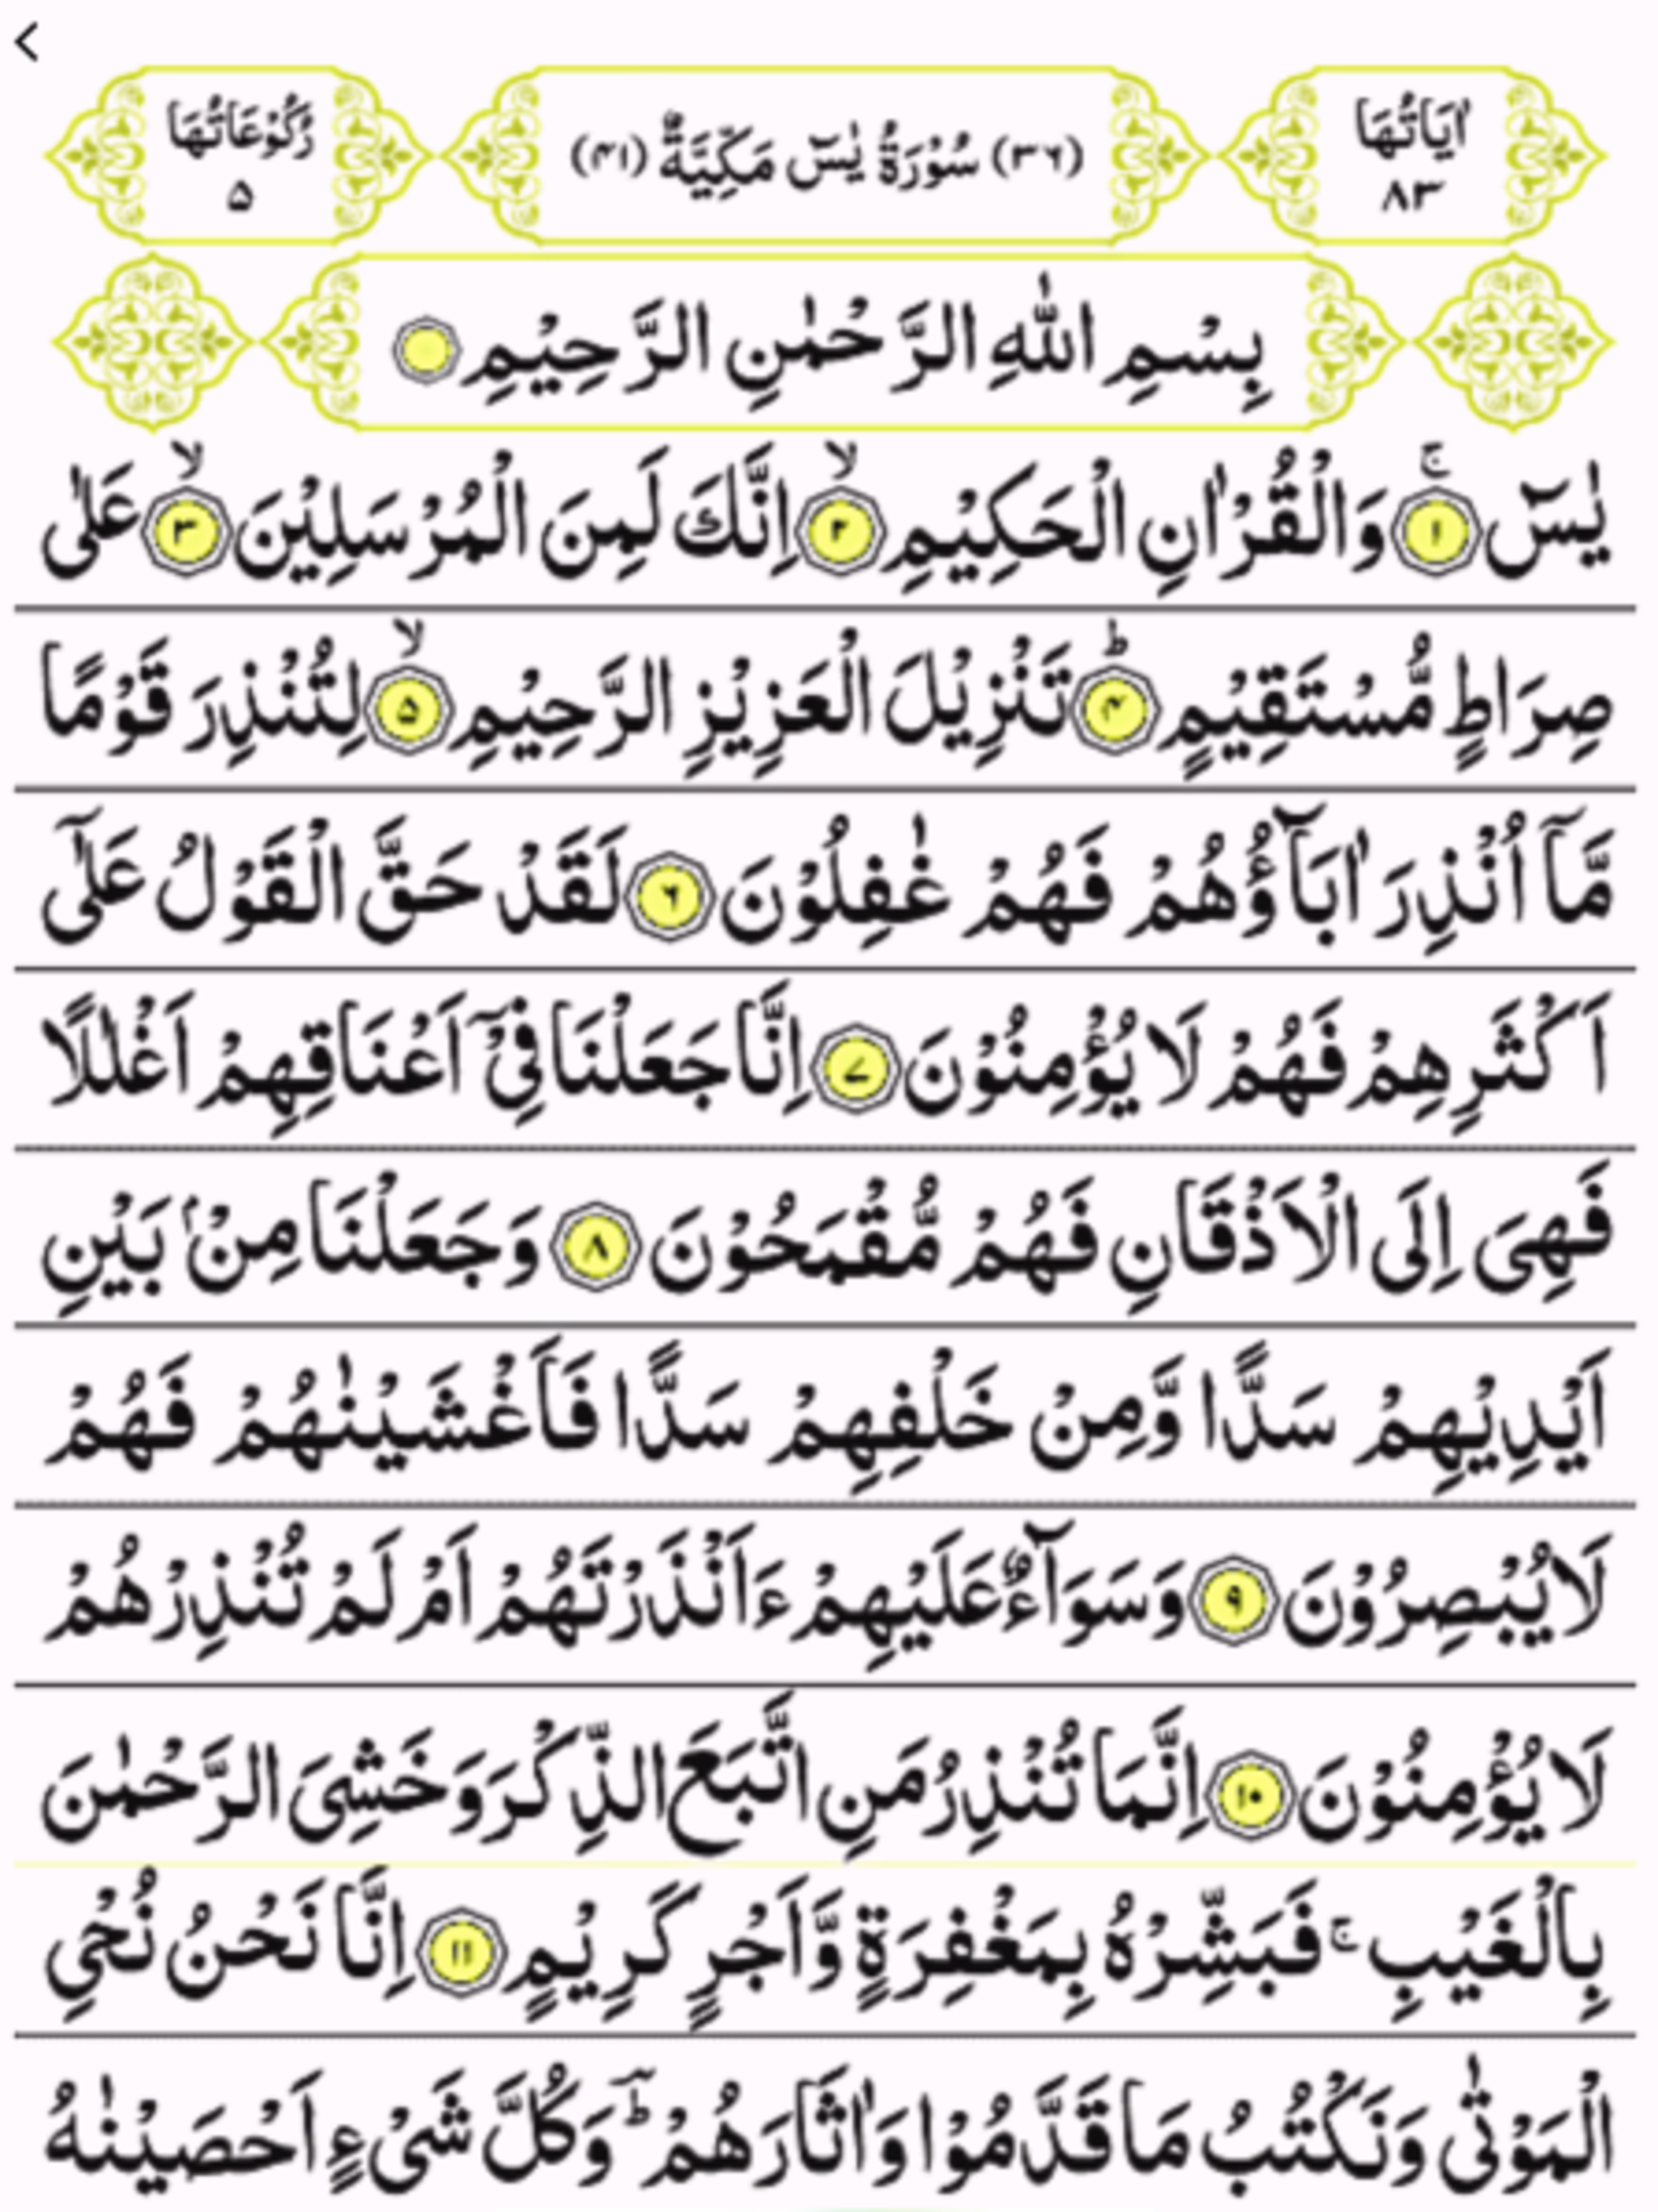 اٰيَاتُهَا ٨٣
(٣٦) سُوْرَةُ يٰسٓ مَكِّيَّةٌ (٤١)
رُكُوْعَاتُهَا ٥
بِسْمِ اللّٰهِ الرَّحْمٰنِ الرَّحِيْمِ
يٰسٓ ۚ﴿١﴾ وَالْقُرْاٰنِ الْحَكِيْمِ ۙ﴿٢﴾ اِنَّكَ لَمِنَ الْمُرْسَلِيْنَ ۙ﴿٣﴾ عَلٰى
صِرَاطٍ مُّسْتَقِيْمٍ ؕ﴿٤﴾ تَنْزِيْلَ الْعَزِيْزِ الرَّحِيْمِ ۙ﴿٥﴾ لِتُنْذِرَ قَوْمًا
مَّاۤ اُنْذِرَ اٰبَآؤُهُمْ فَهُمْ غٰفِلُوْنَ ﴿٦﴾ لَقَدْ حَقَّ الْقَوْلُ عَلٰۤى
اَكْثَرِهِمْ فَهُمْ لَا يُؤْمِنُوْنَ ﴿٧﴾ اِنَّا جَعَلْنَا فِىْۤ اَعْنَاقِهِمْ اَغْلٰلًا
فَهِىَ اِلَى الْاَذْقَانِ فَهُمْ مُّقْمَحُوْنَ ﴿٨﴾ وَجَعَلْنَا مِنْۢ بَيْنِ
اَيْدِيْهِمْ سَدًّا وَّمِنْ خَلْفِهِمْ سَدًّا فَاَغْشَيْنٰهُمْ فَهُمْ
لَا يُبْصِرُوْنَ ﴿٩﴾ وَسَوَآءٌ عَلَيْهِمْ ءَاَنْذَرْتَهُمْ اَمْ لَمْ تُنْذِرْهُمْ
لَا يُؤْمِنُوْنَ ﴿١٠﴾ اِنَّمَا تُنْذِرُ مَنِ اتَّبَعَ الذِّكْرَ وَخَشِىَ الرَّحْمٰنَ
بِالْغَيْبِ ۚ فَبَشِّرْهُ بِمَغْفِرَةٍ وَّاَجْرٍ كَرِيْمٍ ﴿١١﴾ اِنَّا نَحْنُ نُحْىِ
الْمَوْتٰى وَنَكْتُبُ مَا قَدَّمُوْا وَاٰثَارَهُمْ ؕ وَكُلَّ شَىْءٍ اَحْصَيْنٰهُ